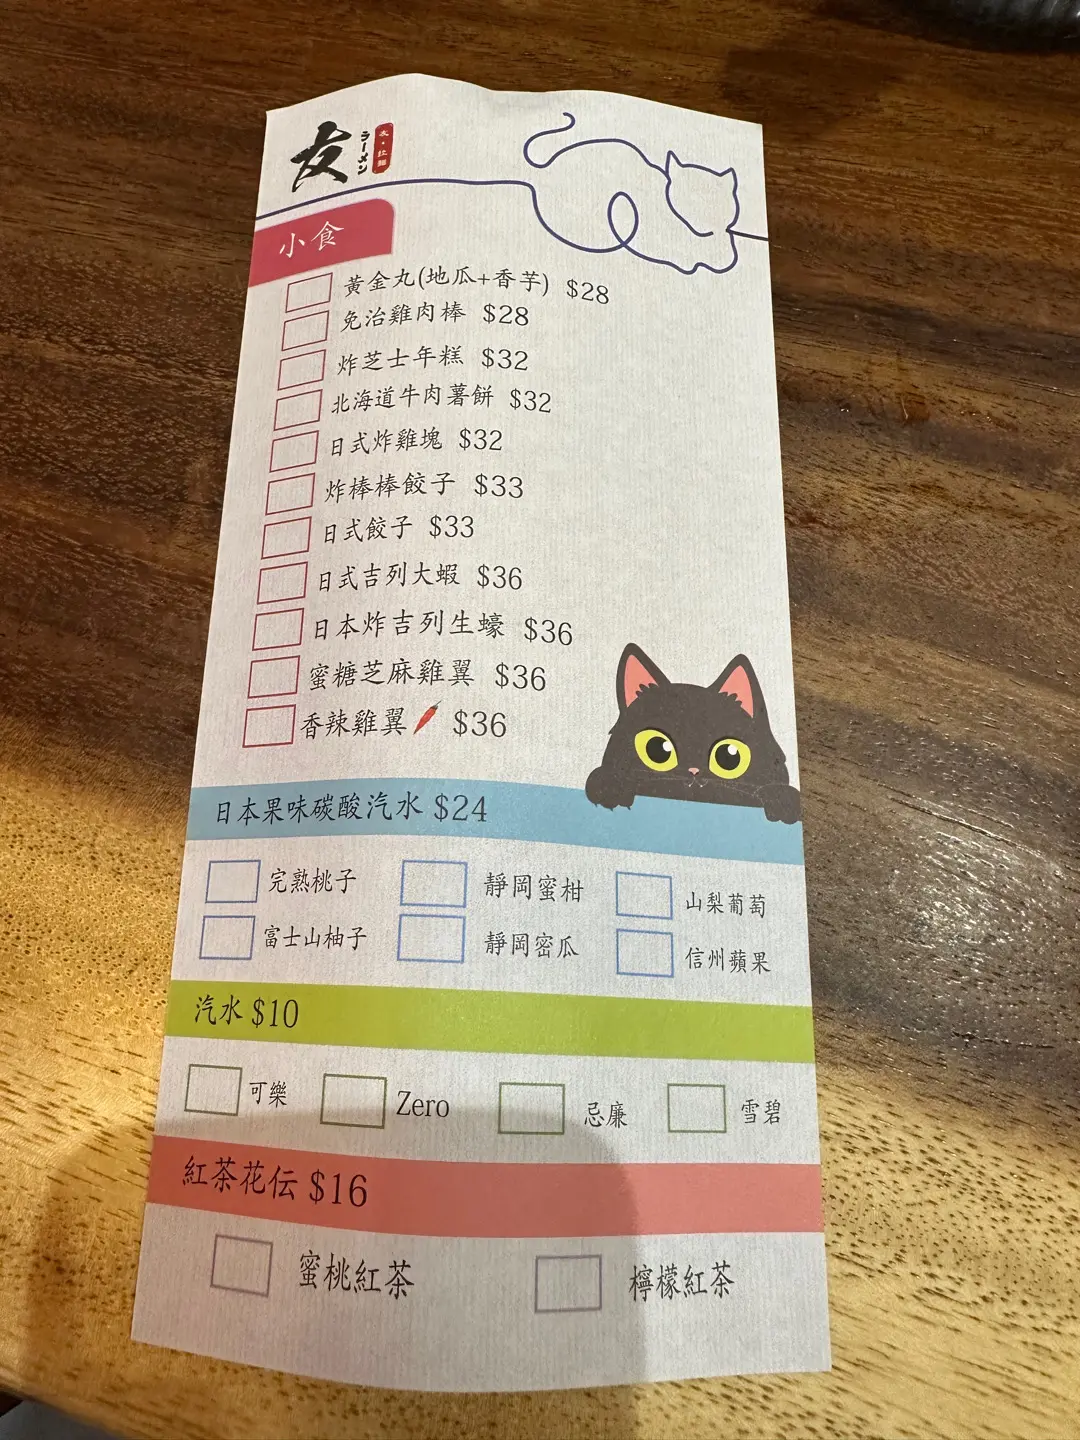 友
ラーメン
友・拉麵
小食
黃金丸(地瓜+香芋) $28
免治雞肉棒 $28
炸芝士年糕 $32
北海道牛肉薯餅 $32
日式炸雞塊 $32
炸棒棒餃子 $33
日式餃子 $33
日式吉列大蝦 $36
日本炸吉列生蠔 $36
蜜糖芝麻雞翼 $36
香辣雞翼🌶 $36
日本果味碳酸汽水 $24
完熟桃子 靜岡蜜柑 山梨葡萄
富士山柚子 靜岡密瓜 信州蘋果
汽水 $10
可樂 Zero 忌廉 雪碧
紅茶花伝 $16
蜜桃紅茶 檸檬紅茶